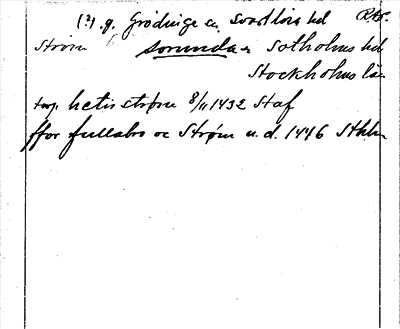 (?) g. Grödinge sn Svartlösa hd RAp.
Ström Sorunda sn Sotholms hd
Stockholms län
top. hetis strøm 8/11 1432 Staf
ffor fullabro oc Strøm u.d. 1446 Sthlm